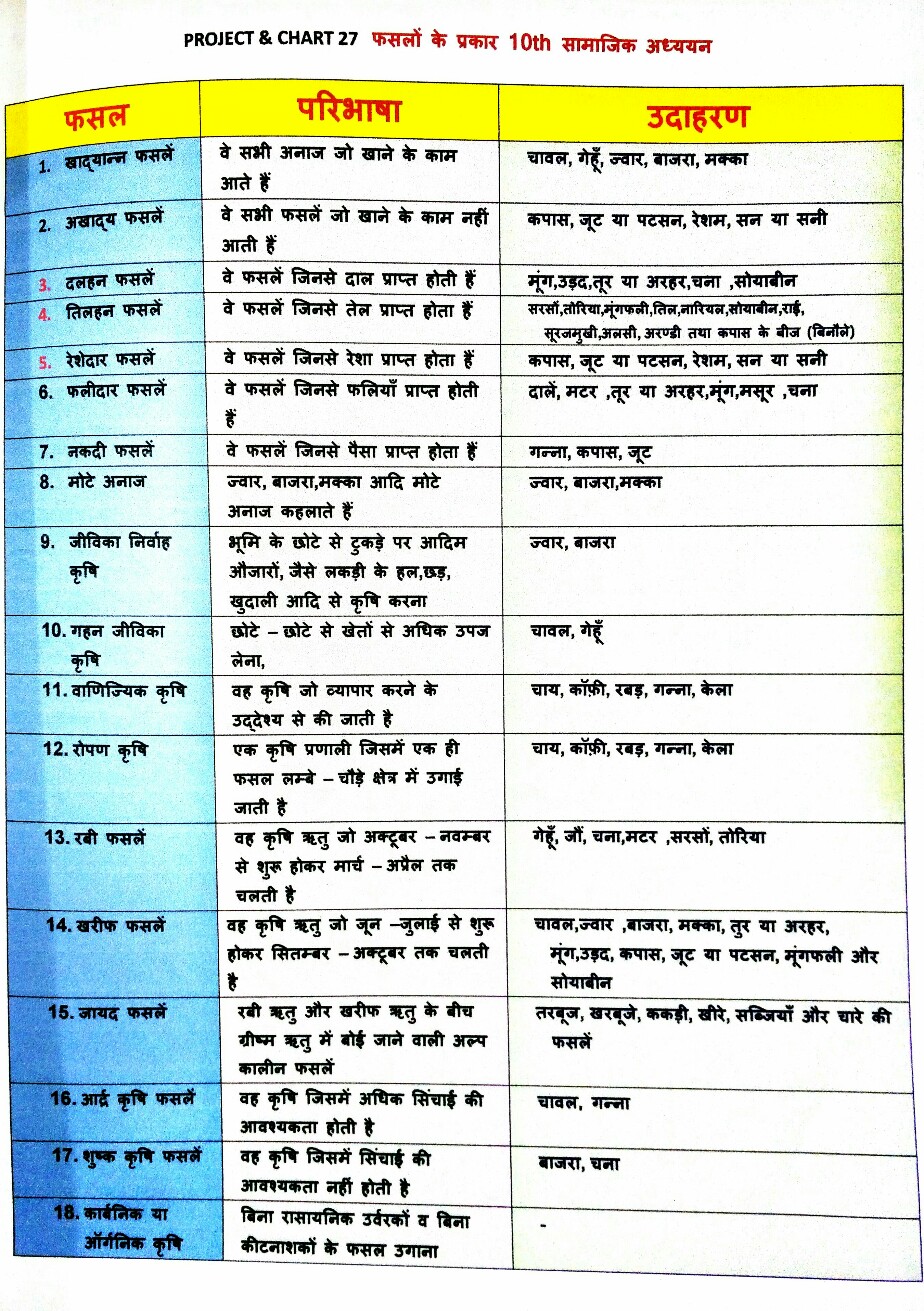 PROJECT & CHART 27 फसलों के प्रकार 10th सामाजिक अध्ययन
फसल परिभाषा उदाहरण
1. खाद्यान्न फसलें वे सभी अनाज जो खाने के काम चावल, गेहूँ, ज्वार, बाजरा, मक्का
आते हैं
2. अखाद्य फसलें वे सभी फसलें जो खाने के काम नहीं कपास, जूट या पटसन, रेशम, सन या सनी
आती हैं
3. दलहन फसलें वे फसलें जिनसे दाल प्राप्त होती हैं मूंग,उड़द,तूर या अरहर,चना ,सोयाबीन
4. तिलहन फसलें वे फसलें जिनसे तेल प्राप्त होता हैं सरसों,तोरिया,मूंगफली,तिल,नारियल,सोयाबीन,राई,
सूरजमुखी,अलसी, अरण्डी तथा कपास के बीज (बिनौले)
5. रेशेदार फसलें वे फसलें जिनसे रेशा प्राप्त होता हैं कपास, जूट या पटसन, रेशम, सन या सनी
6. फलीदार फसलें वे फसलें जिनसे फलियाँ प्राप्त होती दालें, मटर ,तूर या अरहर,मूंग,मसूर ,चना
हैं
7. नकदी फसलें वे फसलें जिनसे पैसा प्राप्त होता हैं गन्ना, कपास, जूट
8. मोटे अनाज ज्वार, बाजरा,मक्का आदि मोटे ज्वार, बाजरा,मक्का
अनाज कहलाते हैं
9. जीविका निर्वाह भूमि के छोटे से टुकड़े पर आदिम ज्वार, बाजरा
कृषि औजारों, जैसे लकड़ी के हल,छड़,
खुदाली आदि से कृषि करना
10. गहन जीविका छोटे – छोटे से खेतों से अधिक उपज चावल, गेहूँ
कृषि लेना,
11. वाणिज्यिक कृषि वह कृषि जो व्यापार करने के चाय, कॉफ़ी, रबड़, गन्ना, केला
उद्देश्य से की जाती है
12. रोपण कृषि एक कृषि प्रणाली जिसमें एक ही चाय, कॉफ़ी, रबड़, गन्ना, केला
फसल लम्बे – चौड़े क्षेत्र में उगाई
जाती है
13. रबी फसलें वह कृषि ऋतु जो अक्टूबर – नवम्बर गेहूँ, जौं, चना,मटर ,सरसों, तोरिया
से शुरू होकर मार्च – अप्रैल तक
चलती है
14. खरीफ फसलें वह कृषि ऋतु जो जून –जुलाई से शुरू चावल,ज्वार ,बाजरा, मक्का, तुर या अरहर,
होकर सितम्बर – अक्टूबर तक चलती मूंग,उड़द, कपास, जूट या पटसन, मूंगफली और
है सोयाबीन
15. जायद फसलें रबी ऋतु और खरीफ ऋतु के बीच तरबूज, खरबूजे, ककड़ी, खीरे, सब्जियाँ और चारे की
ग्रीष्म ऋतु में बोई जाने वाली अल्प फसलें
कालीन फसलें
16. आर्द्र कृषि फसलें वह कृषि जिसमें अधिक सिंचाई की चावल, गन्ना
आवश्यकता होती है
17. शुष्क कृषि फसलें वह कृषि जिसमें सिंचाई की बाजरा, चना
आवश्यकता नहीं होती है
18. कार्बनिक या बिना रासायनिक उर्वरकों व बिना -
ऑर्गनिक कृषि कीटनाशकों के फसल उगाना